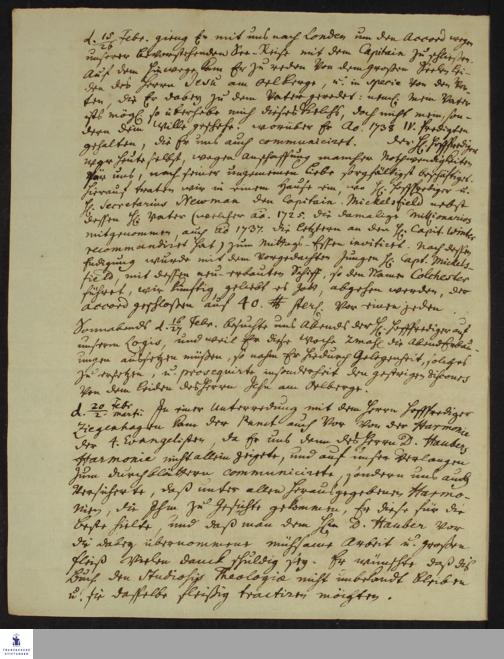 d. 15/26 Febr. gieng Er mit uns nach London um den Accord wegen
unserer bevorstehenden See-Reise mit dem Capitain zu schliessen.
Auf dem Hinwege kam Er zu reden von dem großen Seelen-Lei-
den des Herrn Jesu am Oelberge, u. in specie von den Wor-
ten, die Er dabey zu dem Vater geredet: nemlich mein Vater
ists mögl. so überhebe mich dieses Kelchs, doch nicht mein, son-
dern dein Wille geschehe. worüber Er Ao. 1738 IV. Predigten
gehalten, die Er uns auch communiciret. Der H. Hoffprediger
war heute selbst, wegen Anschaffung mancher Nothwendigkeiten
für uns, nach seiner ungemeinen Liebe sorgfältigst beschäftiget.
Hierauf traten wir in einem Hause ein, wo H. Hoffprediger u.
H. Secretarius Newman den Capitain Mickelsfield nebst
dessen H. Vater (welcher ao. 1725. die damalige Missionarios
mitgenommen, auch ao 1737. die letztern an den H. Capit.
recommandiret hat) zum Mittags-Essen invitiret. Nach dessen
Endigung wurde mit dem vorgedachten jungen H. Capt. Mickels-
field mit dessen neu erbauten Schiff, so den Namen Colchester
führet, wir künftig geliebt es Gott, abgehen werden, der
accord geschlossen auf 40. ℔ sterl. vor einen jeden.
Sonnabends d. 16/27 Febr. besuchte uns Abends der H. Hoffprediger auf
unserm Logis, und weil Er diese Woche 2mahl die Abenderbau-
ungen aussetzen müßen, so nahm Er hiedurch Gelegenheit, solches
zu ersetzen, u. prosequirte insonderheit den gestrigen discours
von dem Leiden des Herrn Jesu am Oelberge.
d. 20 Febr./2. Marti. In einer Unterredung mit dem Herrn Hoffprediger
Ziegenhagen kam der Rede auch vor von der Harmonie
der 4. Evangelisten, da Er uns denn des Herrn D. Haubers
Harmonie nicht allein zeigete, und auf unser Verlangen
zum durchblättern communicirte, sondern uns auch
versicherte, daß unter allen herausgegebenen Harmo-
nien, die Ihm zu Gesichte gekommen, Er diese für die
beste hielte, und daß man dem Hn D. Hauber vor
die dabey übernommene mühsame Arbeit u. großen
Fleiß vielen Danck schuldig sey. Er wünschte daß dis
Buch den Studiosis Theologiæ nicht unbekandt bleiben
u. sie dasselbe fleißig tractiren möchten.
FRANCKESCHE
STIFTUNGEN